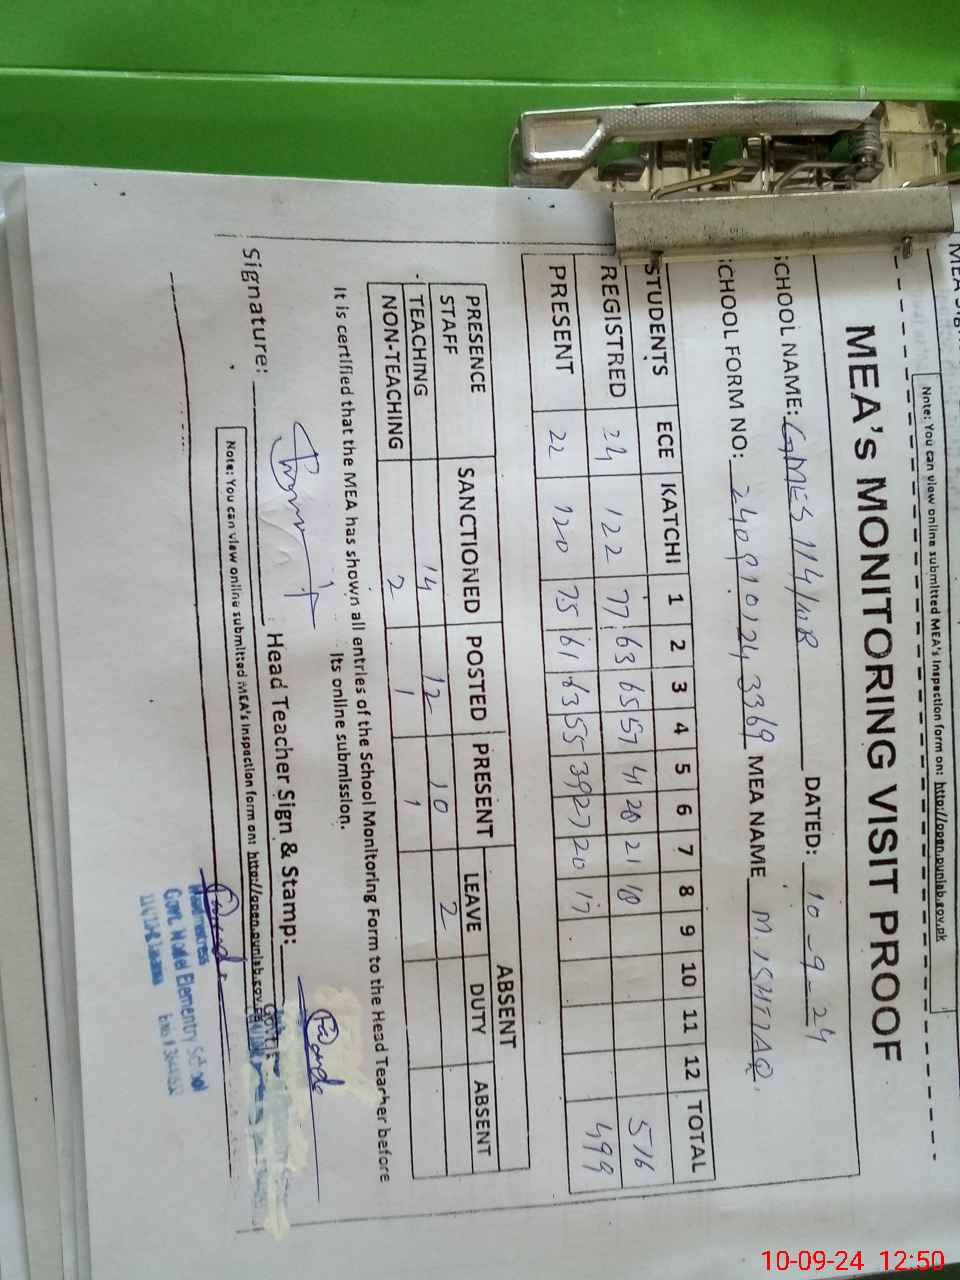 MEA Sign
Note: You can view online submitted MEA's inspection form on: http://open.punjab.gov.pk
MEA's MONITORING VISIT PROOF
CHOOL NAME: GMES 114/10R DATED: 10-9-24
CHOOL FORM NO: 2409101243369 MEA NAME M. ISHTIAQ.
STUDENTS ECE KATCHI 1 2 3 4 5 6 7 8 9 10 11 12 TOTAL
REGISTRED 24 122 77 63 65 57 41 28 21 18 516
PRESENT 22 120 75 61 63 55 39 27 20 17 499
PRESENCE SANCTIONED POSTED PRESENT ABSENT
STAFF LEAVE DUTY ABSENT
TEACHING 14 12 10 2
NON-TEACHING 2 1 1
It is certified that the MEA has shown all entries of the School Monitoring Form to the Head Teacher before
its online submission.
Signature: Head Teacher Sign & Stamp:
Govt.
Note: You can view online submitted MEA's inspection form on: http://open.punjab.gov.pk
Headmistress
Govt. Model Elementry School
10-09-24 12:50